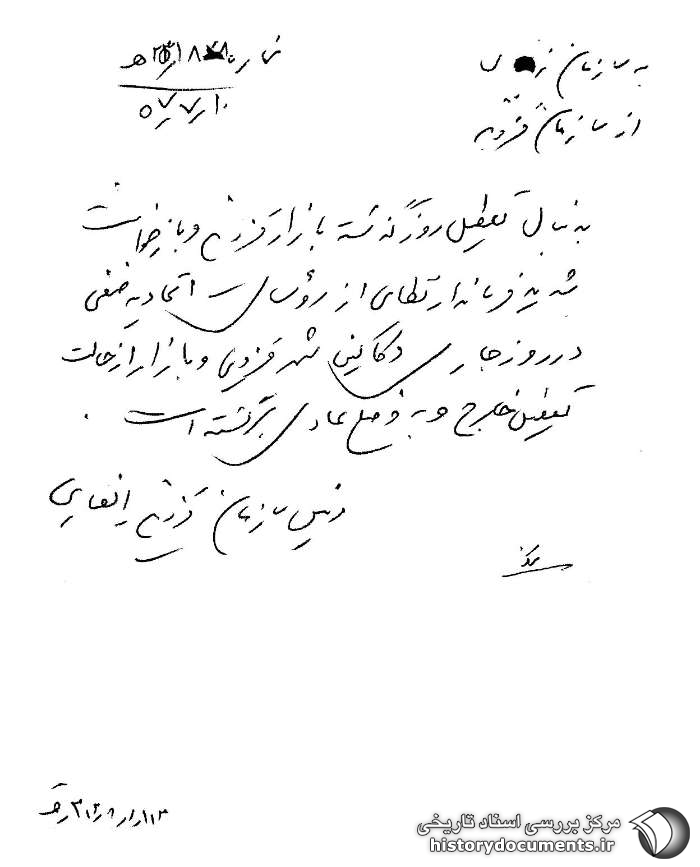 به سازمان
از سازمان قزوین
بدنبال تعطیل روز گذشته بازار قزوین و بازخواست
شدید فرماندار نظامی از رؤسای اتحادیه صنفی
در روز جاری دکاکین شهر قزوین و بازار از حالت
تعطیل خارج و به وضع عادی برگشته است .
رئیس سازمان قزوین انصاری
مرکز بررسی اسناد تاریخی
historydocuments.ir